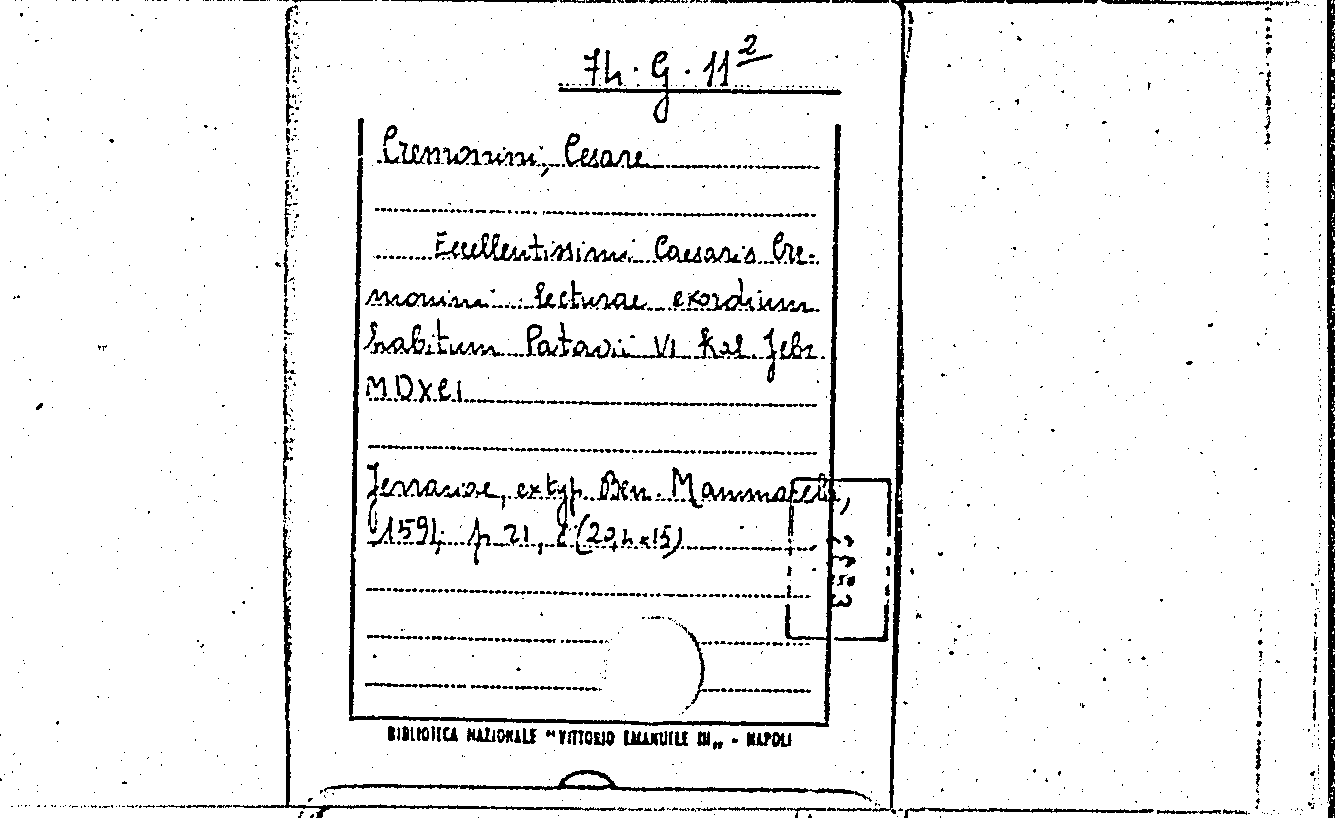 7h. G. 11²
Cremonini, Cesare
Eccellentissimi Caesaris Cre-
monini lecturae exordium
habitum Patavii VI Kal. Febr.
MDXCI
Ferrariae, ex typ. Ben. Mammarelli,
1591, p 21, (20,4 x 15)
BIBLIOTECA NAZIONALE "VITTORIO EMANUELE III„ - NAPOLI